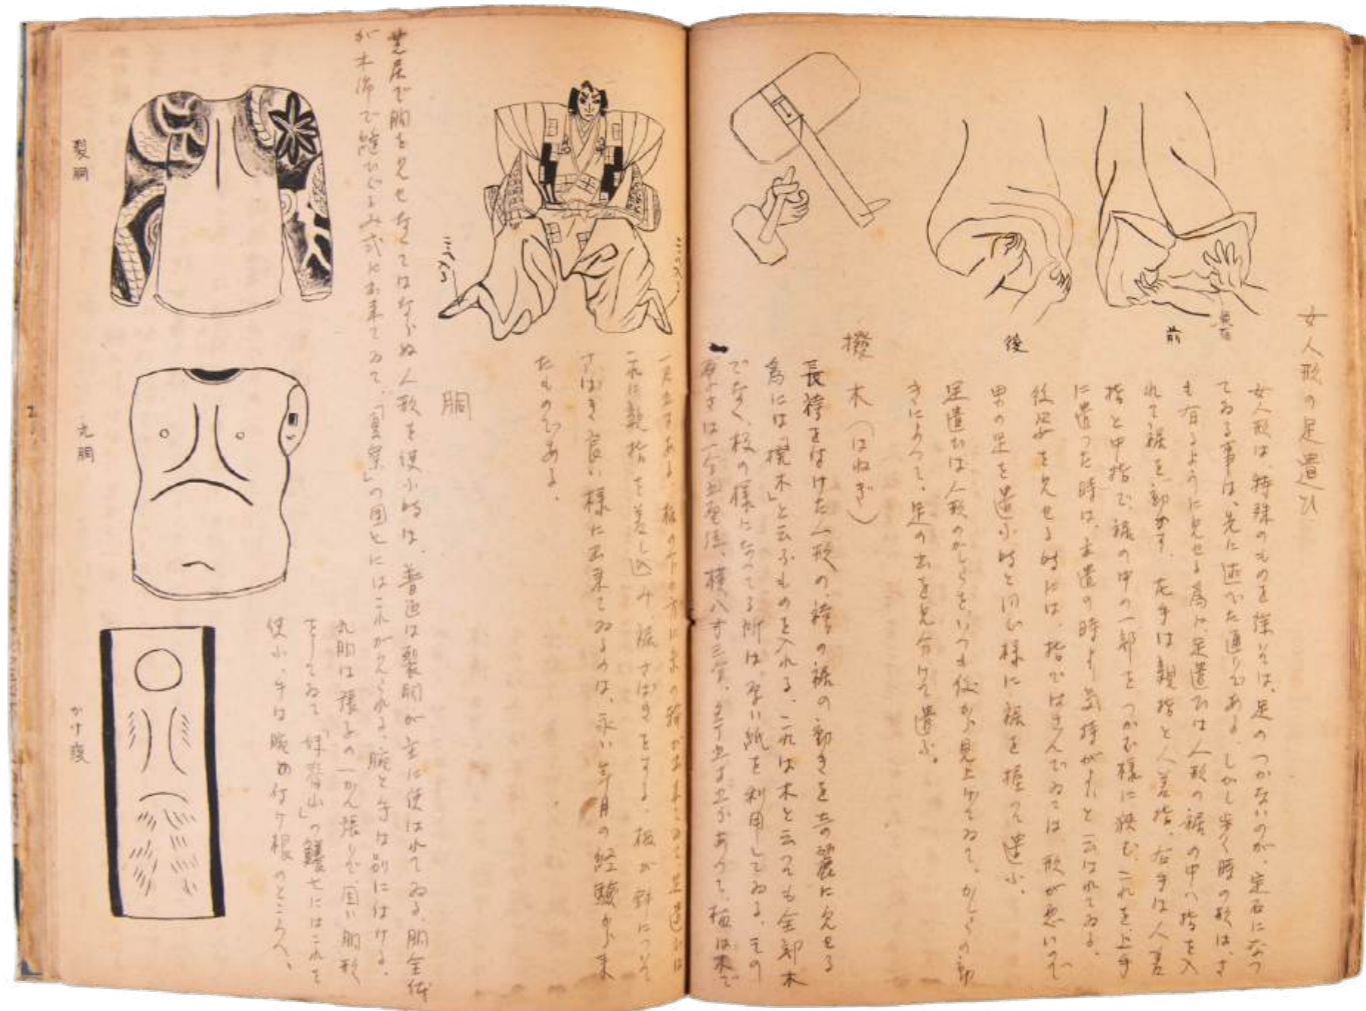 女人形の足遣ひ
女人形は、特殊のものを除いては、足のつかないのが、定石になつ
てゐる事は、先に述べた通りである。しかし歩く時の形は、さ
も有るように見せる為に、足遣ひは人形の裾の中へ指を入
れて裾を動かす。左手は親指と人差指、右手は人差
指と中指で、裾の中の一部をつかむ様に狭む。これを上手
に遣つた時は、主遣の時より気持がよいと云はれてゐる。
後姿を見せる時には、指ではさんでゐては形が悪いので
男の足を遣ふ時と同じ様に裾を握つて遣ふ。
足遣ひは人形のかしらを、いつも下から見上げてゐて、かしらの動
きによつて、足の出を見分けて遣ふ。
前
後
撥木(はねぎ)
長袴をはけた人形の、袴の裾の動きを
為には「撥木」と云ふものを入れる。これは木と云つても全部木
でなく、板の様になつてる所は、厚い紙を利用してゐる。その
横八寸三分、
これに親指を差し込み、裾さばきをする。板が斜につて
さばき良い様に出来てゐるのは、永い年月の経験から来
たものである。
胴
芝居で胴を見せなくてはならぬ人形を使ふ時は、普通は裂胴が主に使はれてゐる。胴全体
が木綿で縫ひぐるみ式に出来てゐて、「夏祭」の団七にはこれが見られる。腕と手は別にはける。
丸胴は張子の一かん張りで、固い胴形
をしてゐて「妹脊山」の鱶七にはこれを
使ふ。手は腕の付ケ根のところへ。
裂胴
丸胴
かけ腹